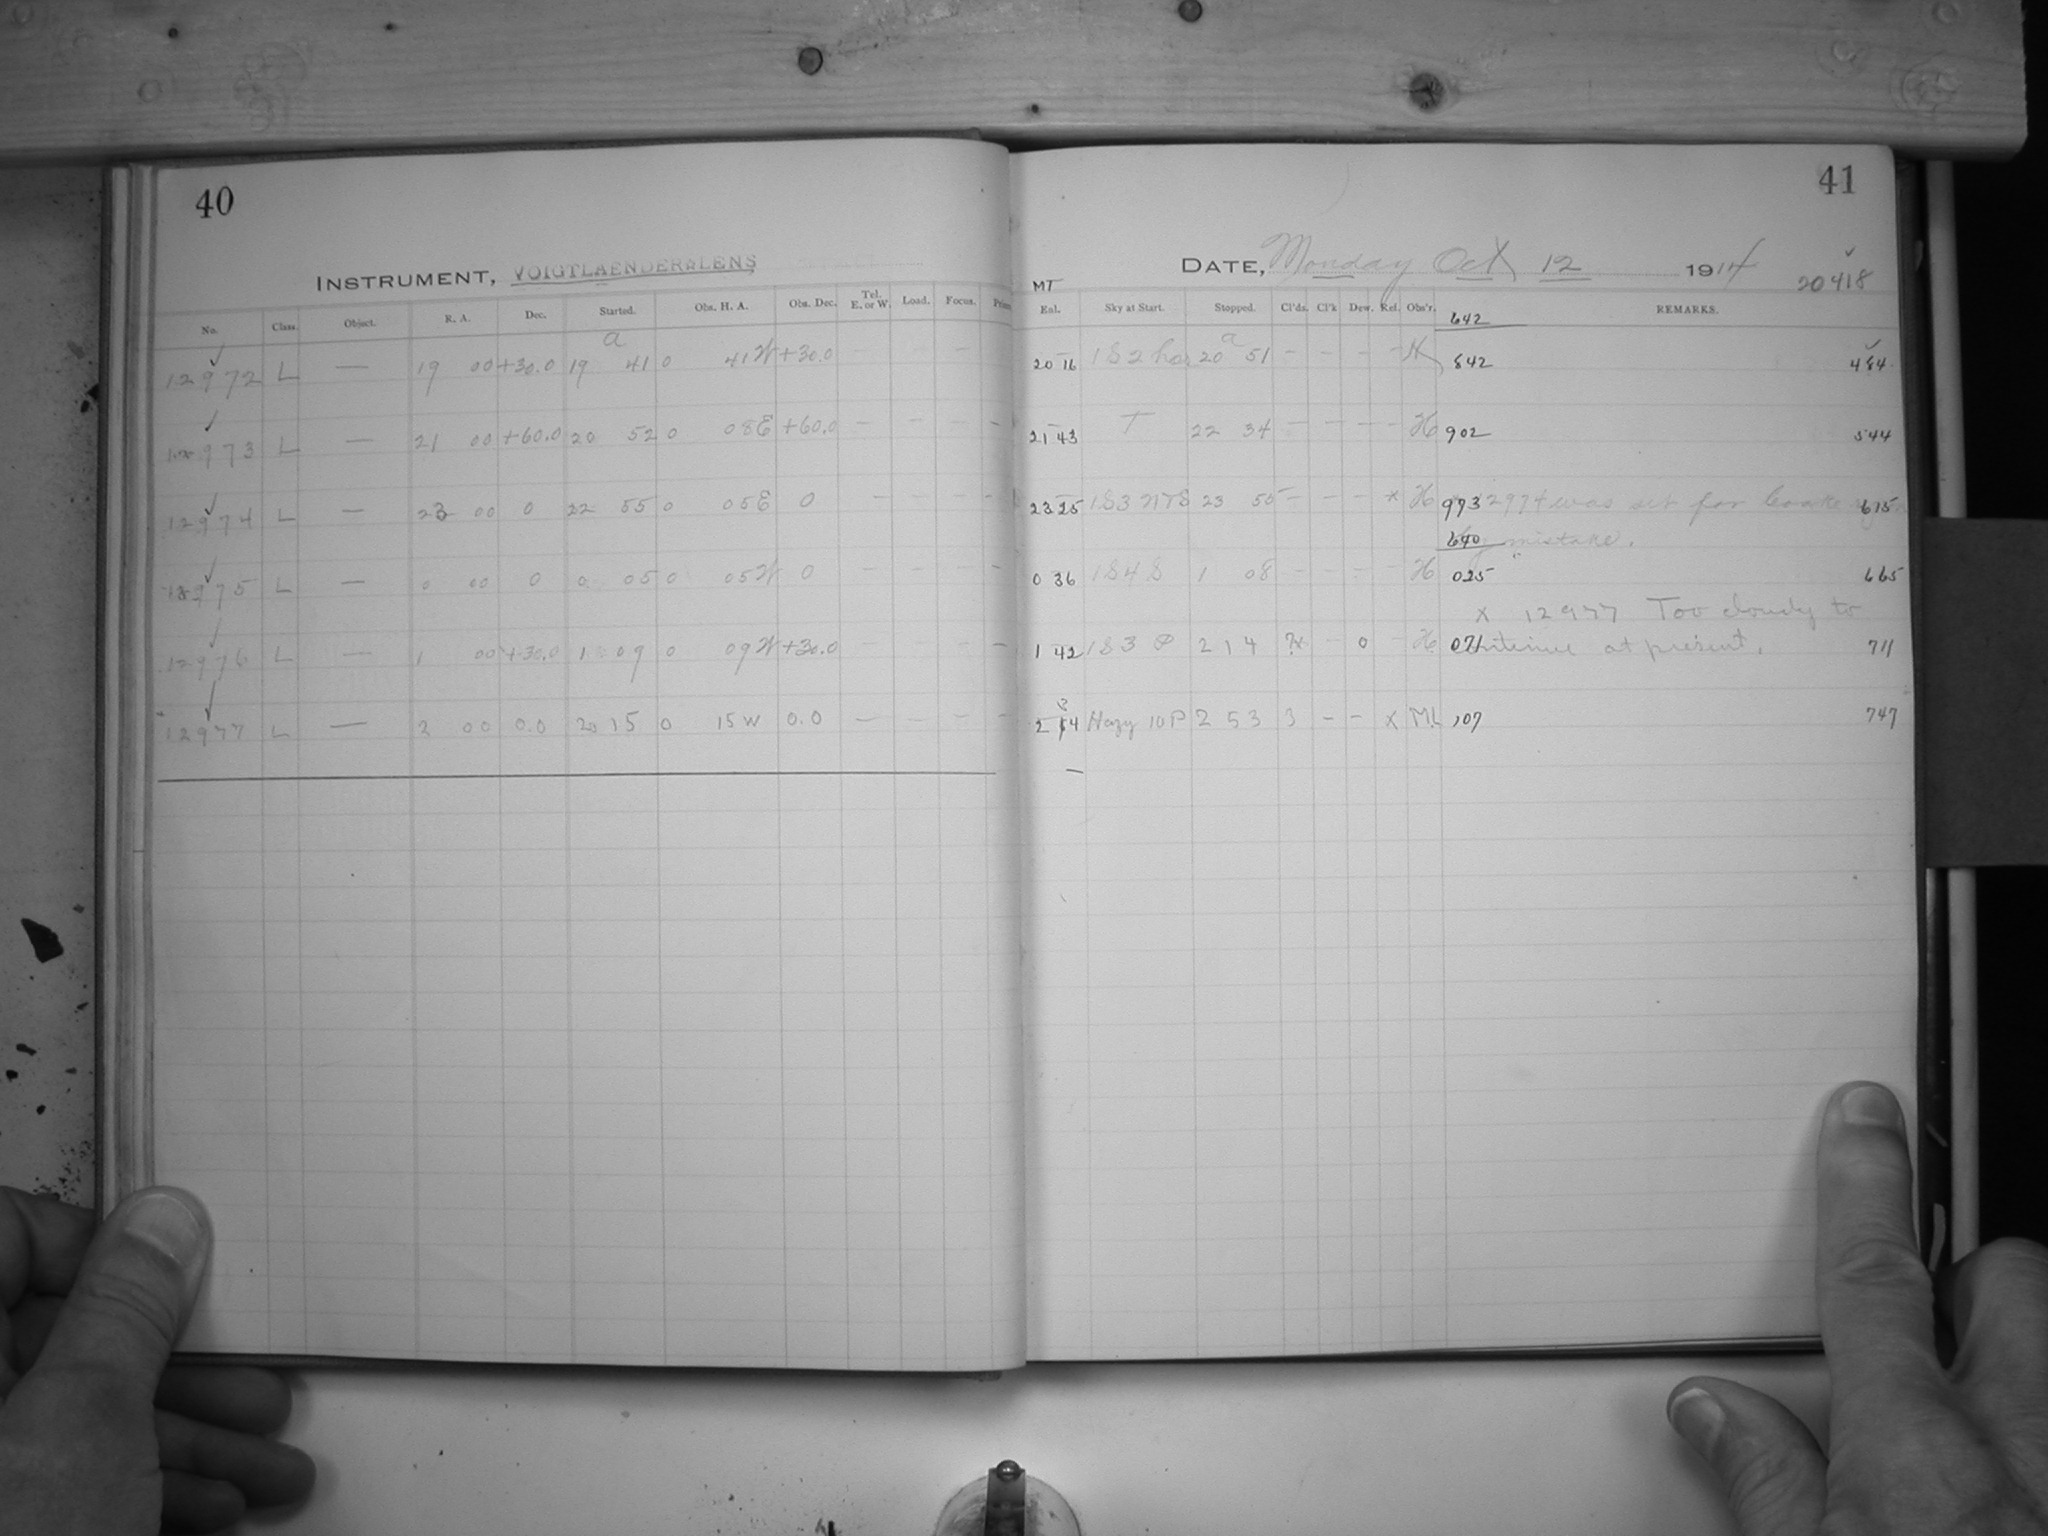 40
INSTRUMENT, VOIGTLAENDER LENS
No. Class. Object. R. A. Dec. Started. Obs. H. A. Obs. Dec. Tel. E. or W. Load. Focus.
a
12972 L — 19 00 +30.0 19 41 0 41W +30.0 — — —
12973 L — 21 00 +60.0 20 52 0 08E +60.0 — — — —
12974 L — 23 00 0 22 55 0 05E 0 — — — —
12975 L — 0 00 0 0 05 0 05W 0 — — — —
12976 L — 1 00 +30.0 1 09 0 09W +30.0 — — —
12977 L — 2 00 0.0 15 0 15W 0.0 — — — —
41
DATE, Monday Oct 12 1914
20418
MT
Exl. Sky at Start. Stopped. Cl'ds. Cl'k Dew. Rel. Obs'r. REMARKS.
642
20 16 1S2 20 a 51 — — — — H 842 484
21 43 T 22 34 — — — — H 902 544
23 25 1S3 23 55 — — — x H 993 2974 was set for 635
640 mistake.
0 36 1S4S 1 08 — — — — H 025 665
x 12977 Too cloudy to
1 42 1S3 P 2 14 — 0 — H 071 continue at present. 711
3
2 14 Hazy 10P 2 53 3 — — x ML 107 747